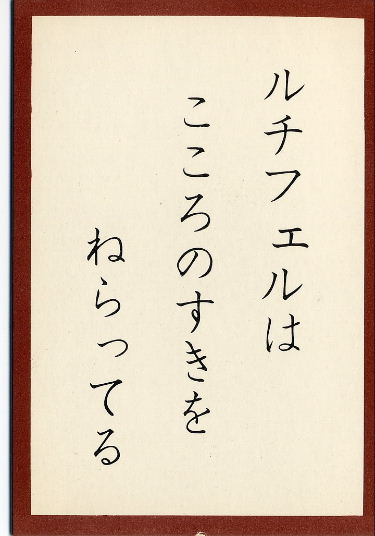 ルチフェルは
こころのすきを
ねらってる